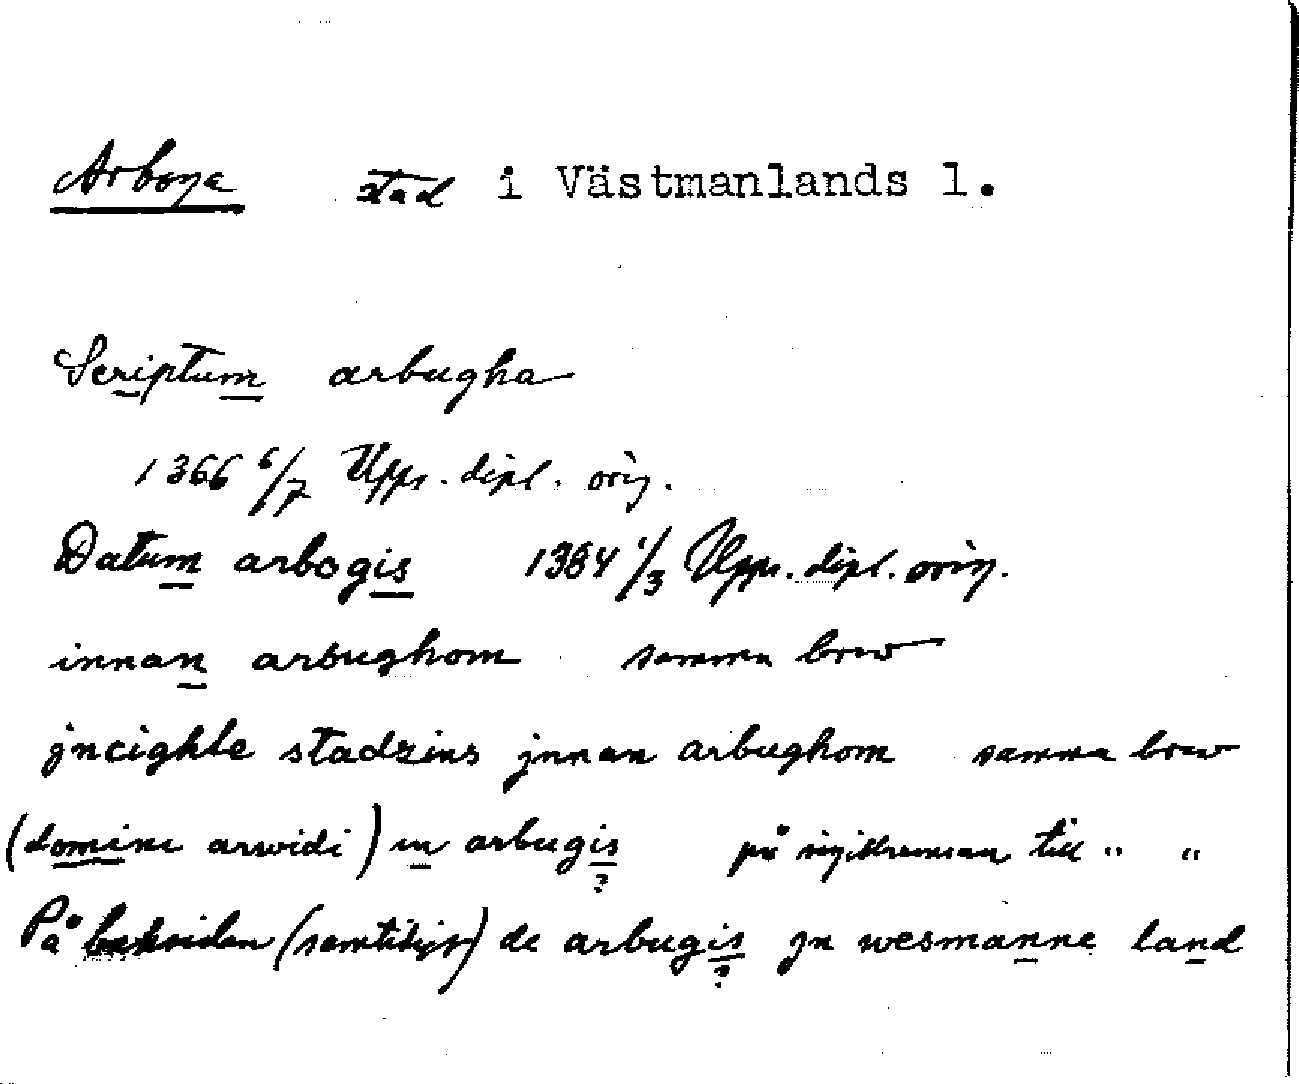 Arboga stad i Västmanlands l.
Scriptum arbugha
1366 6/7 Upps. dipl. orig.
Datum arbogis 1384 1/3 Upps. dipl. orig.
innan arbughom samma brev
jncighle stadzins jnnan arbughom samma brev
(domini arwidi) in arbugis ? på sigillremsan till " "
På baksidan (samtidigt) de arbugis ? jn wesmanne land